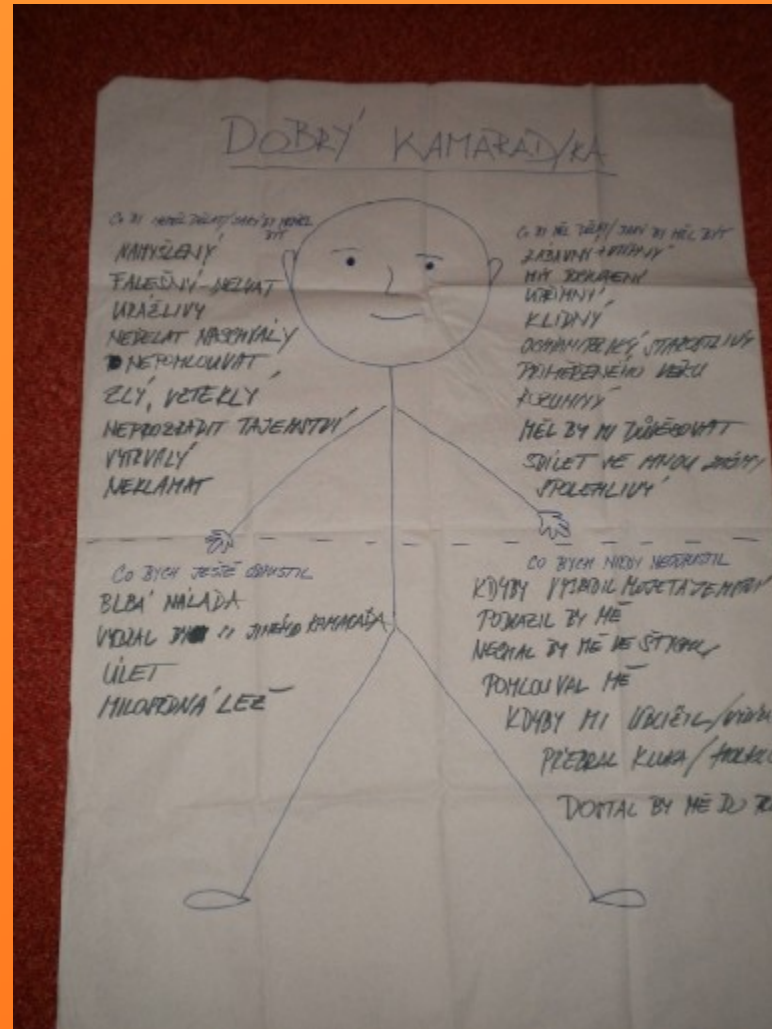 DOBRÝ KAMARÁD/KA
CO BY NEMĚL DĚLAT/JAKÝ BY NEMĚL
BÝT
NAMYŠLENÝ
FALEŠNÝ - NELHAT
URÁŽLIVÝ
NEDĚLAT NASCHVÁLY
NEPOMLOUVAT
ZLÝ, VZTEKLÝ
NEPROZRADIT TAJEMSTVÍ
VYTRVALÝ
NEKLAMAT
CO BY MĚL DĚLAT/JAKÝ BY MĚL BÝT
ZÁBAVNÝ + VTIPNÝ
MÍT
UPŘÍMNÝ
KLIDNÝ
OCHRANITELSKÝ, STAROSTLIVÝ
PŘIMĚŘENÉHO VĚKU
ROZUMNÝ
MĚL BY MI DŮVĚŘOVAT
SDÍLET SE MNOU ZÁJMY
SPOLEHLIVÝ
CO BYCH JEŠTĚ ODPUSTIL
BLBÁ NÁLADA
VYBRAL BY SI JINÉHO KAMARÁDA
ÚLET
MILOSRDNÁ LEŽ
CO BYCH NIKDY NEODPUSTIL
KDYBY VYZRADIL MOJE TAJEMSTVÍ
PODRAZIL BY MĚ
NECHAL BY MĚ VE ŠTYCHU
POMLOUVAL MĚ
KDYBY MI UBLÍŽIL/
PŘEBRAL KLUKA/
DOSTAL BY MĚ DO